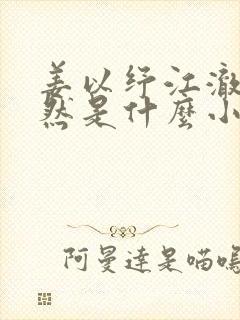 姜以纾江澈
然是什麼小
阿曼達是喵嗚